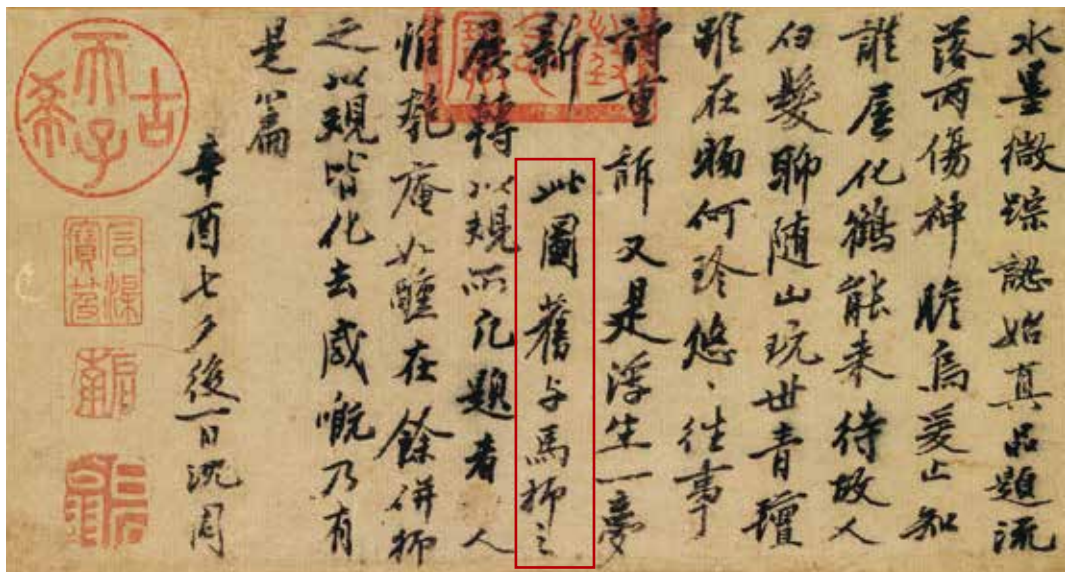 水墨微踪認始真品題流
落兩傷神瞻烏爰止知
誰屋化鶴能来待故人
白髮聊随山玩世青氊
雖在物何珍悠、往事
詩重訴又是浮生一夢
新
此圖舊与馬抑之
展轉以規所記題者人
惟庵如醺在餘併抑
之以規皆化去感嘅乃有
是篇
辛酉七夕後一日沈周
古希天子
石渠寶笈